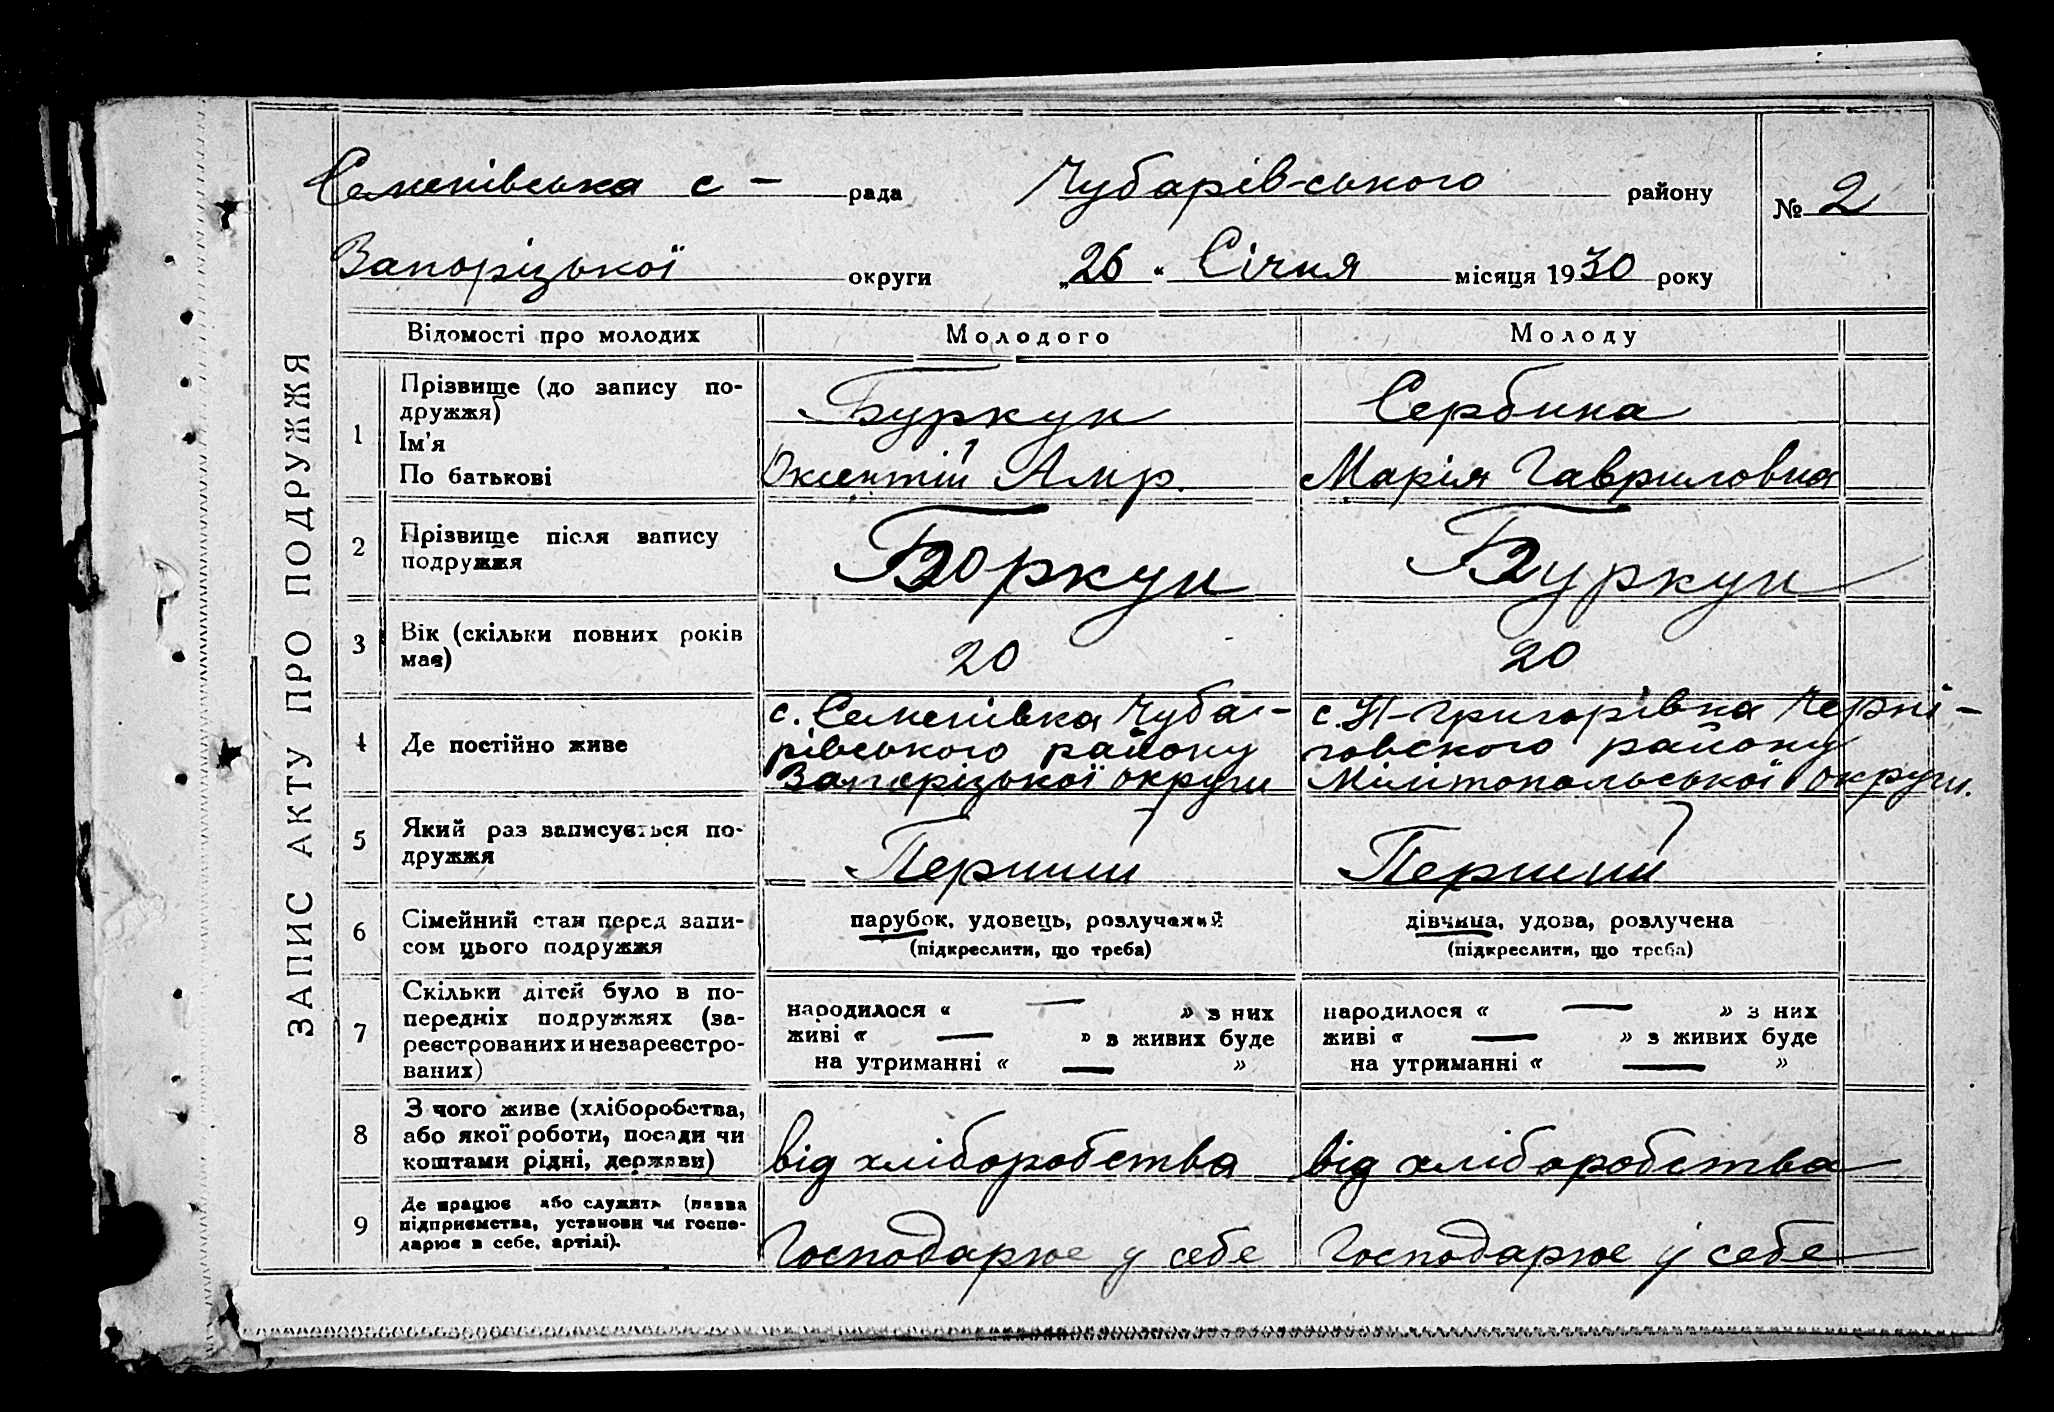 ЗАПИС АКТУ ПРО ПОДРУЖЖЯ
Семенівська с - рада Чубарівського району № 2
Запоріцької округи „26“ Січня місяця 1930 року
Відомості про молодих Молодого Молоду
1 Прізвище (до запису по-
дружжя) Буркун Сербина
Ім'я
По батькові Оксентій Амр. Марія Гавриловна
2 Прізвище після запису
подружжя Боркун Буркун
3 Вік (скільки повних років
має) 20 20
4 Де постійно живе
с. Семенівка Чуба-
рівського району
Запоріцької округи
с. Н-Григорівка Черні-
говского району
Мілітопольської округи.
5 Який раз записується по-
дружжя Перший Перший
6 Сімейний стан перед запи-
сом цього подружжя
парубок, удовець, розлучений
(підкреслити, що треба)
дівчина, удова, розлучена
(підкреслити, що треба)
7 Скільки дітей було в по-
передніх подружжях (за-
реєстрованих и незареєстро-
ваних)
народилося « — » з них
живі « — » з живих буде
на утриманні « — »
народилося « — » з них
живі « — » з живих буде
на утриманні « — »
8 З чого живе (хліборобства,
або якої роботи, посади чи
коштами рідні, держави)
від хліборобства від хліборобства
9 Де працює або служить (назва
підприємства, установи чи госпо-
дарює в себе, артілі).
Господарює у себе Господарює у себе